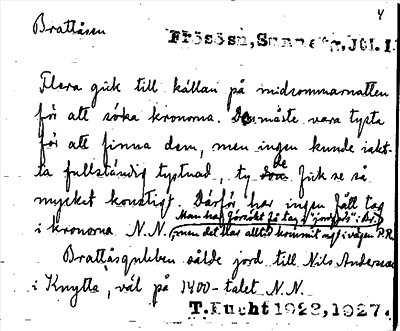 4
Brattåsen
Frösösn, Sunne tg, Jtl. 1
Flera gick till källan på midsommarnatten
för att söka kronorna. De måste vara tysta
för att finna dem, men ingen kunde iakt-
ta fullständig tystnad, ty de fick se så
mycket konstigt. Därför har ingen fått tag
Man har försökt få tag i "jordgods" i Br.)
i kronorna N.N. (men det har alltid kommit ngt i vägen P.R.
Brattåsgubben sålde jord till Nils Andersson
i Knytta, väl på 1400-talet N.N.
T. Fucht 1922, 1927.